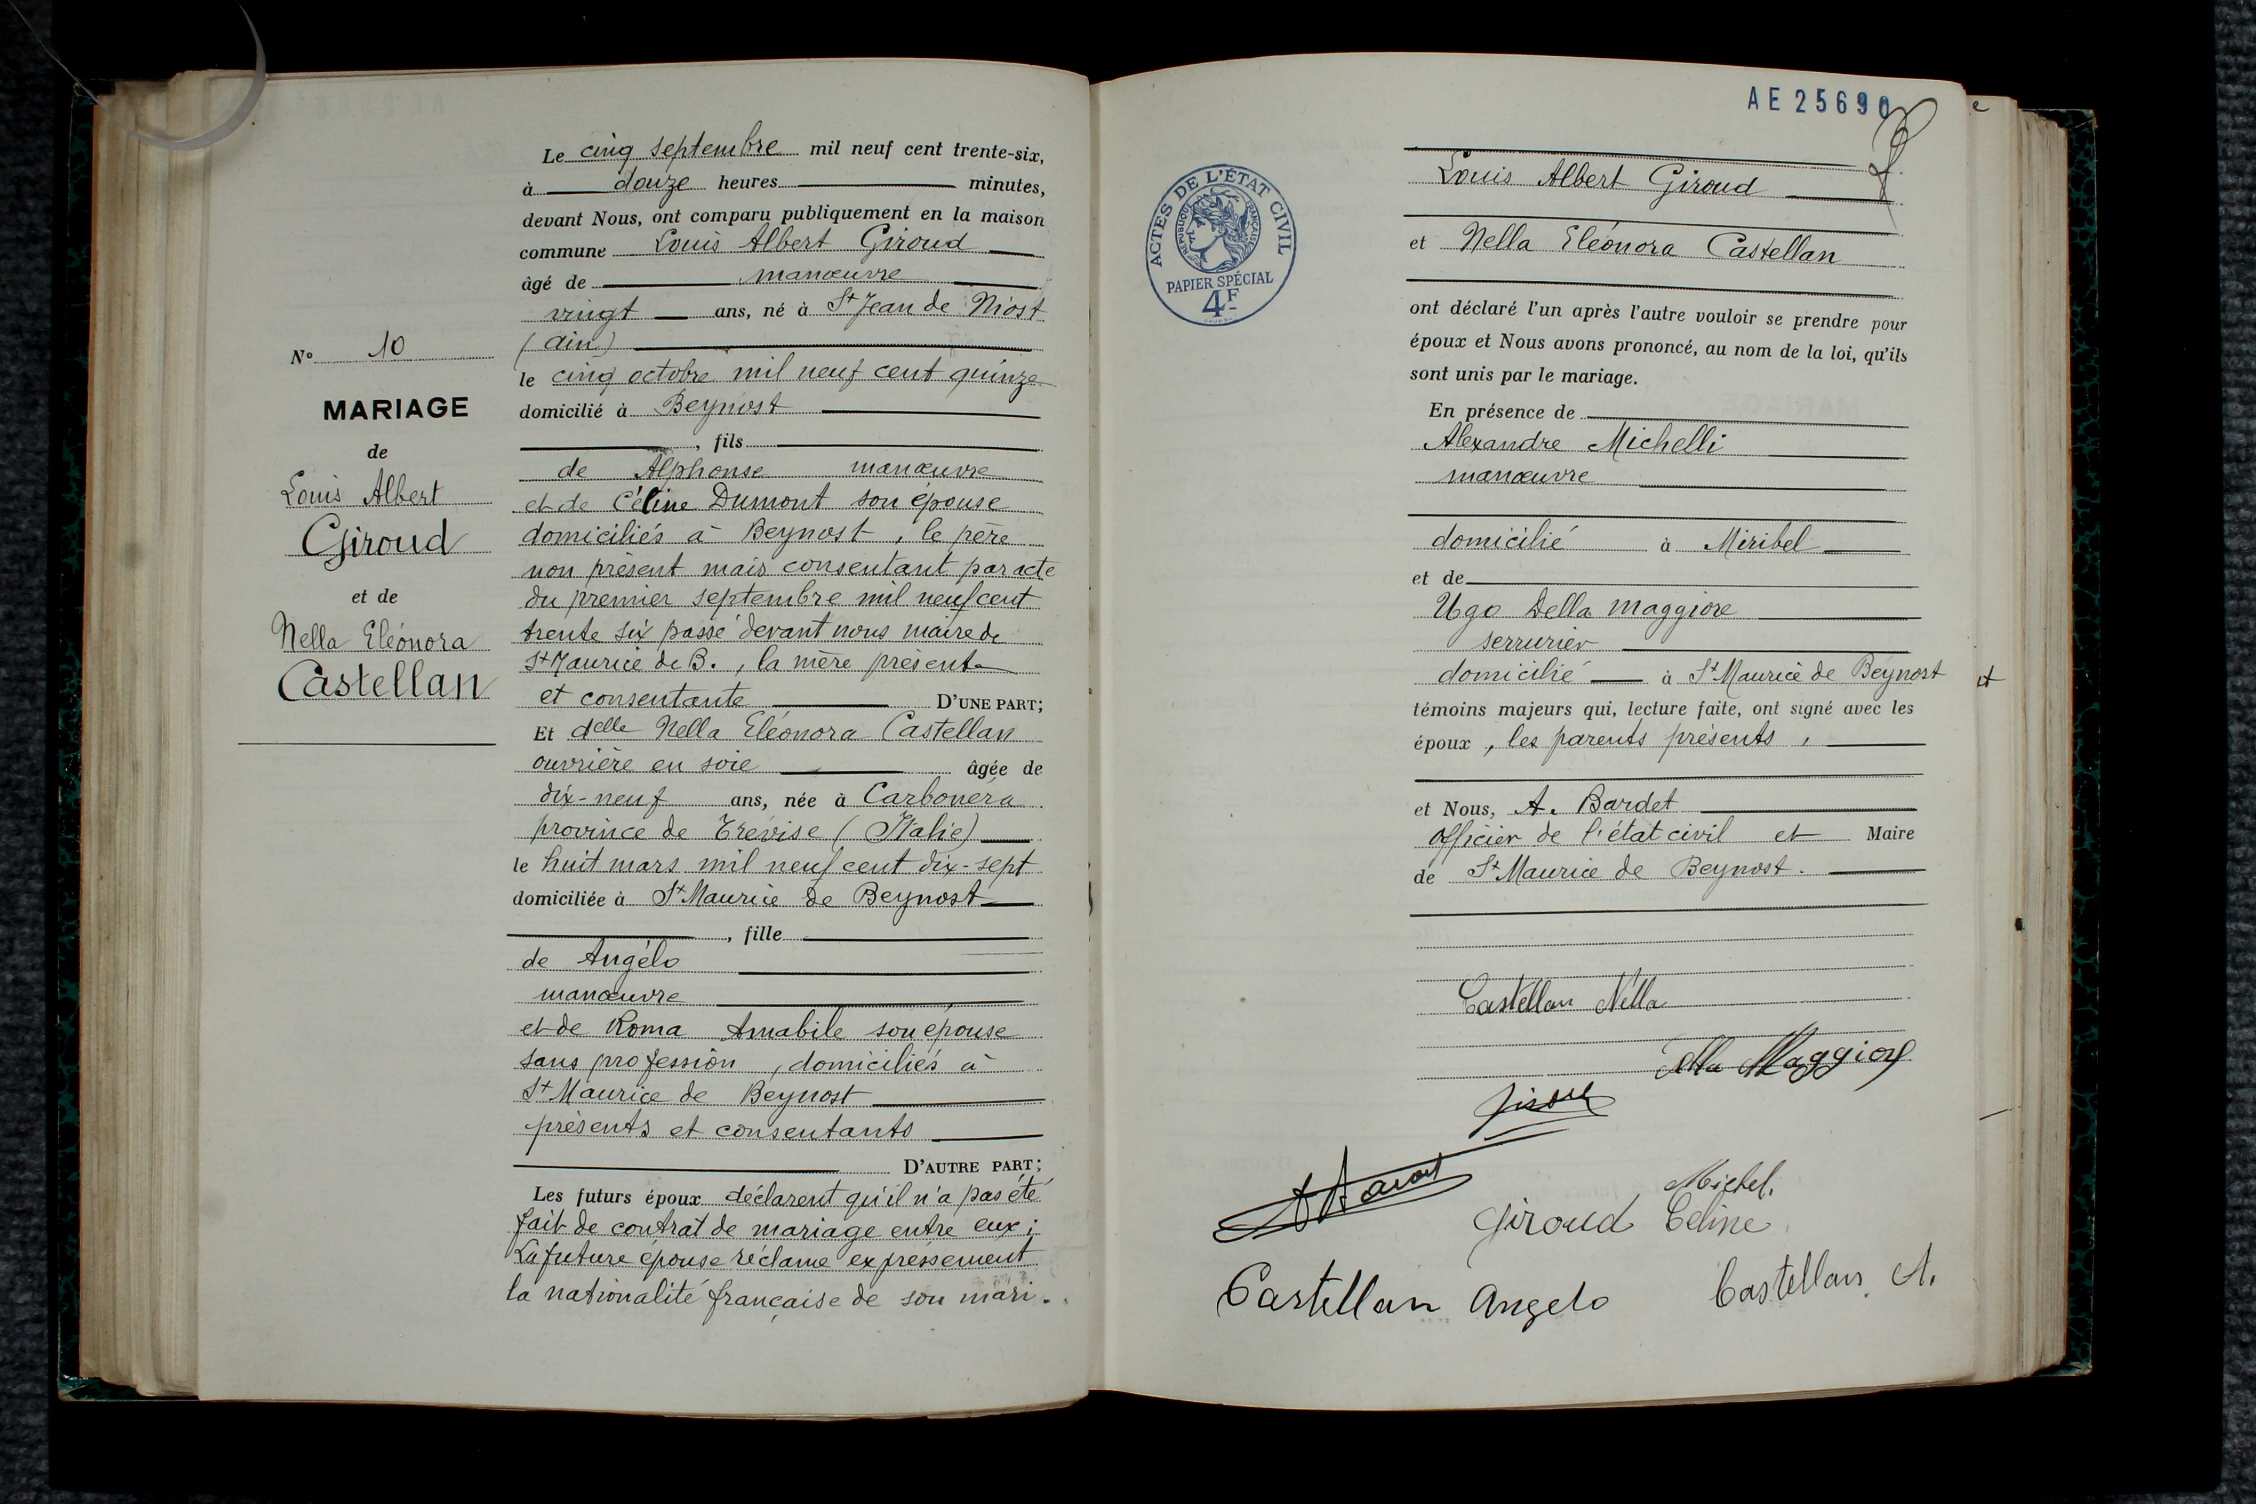 N° 10
MARIAGE
de
Louis Albert
Giroud
et de
Nella Eléonora
Castellan
Le cinq septembre mil neuf cent trente-six,
à douze heures minutes,
devant Nous, ont comparu publiquement en la maison
commune Louis Albert Giroud
âgé de manœuvre
vingt ans, né à St Jean de Niost
(Ain)
le cinq octobre mil neuf cent quinze
domicilié à Beynost
, fils
de Alphonse manœuvre
et de Céline Dumont son épouse
domiciliés à Beynost, le père
non présent mais consentant par acte
du premier septembre mil neuf cent
trente six passé devant nous maire de
St Maurice de B., la mère présente
et consentante D'UNE PART;
Et delle Nella Eléonora Castellan
ouvrière en soie âgée de
dix-neuf ans, née à Carbonéra
province de Trévise (Italie)
le huit mars mil neuf cent dix-sept
domiciliée à St Maurice de Beynost
, fille
de Angélo
manœuvre
et de Roma Amabile son épouse
sans profession, domiciliés à
St Maurice de Beynost
présents et consentants
D'AUTRE PART;
Les futurs époux déclarent qu'il n'a pas été
fait de contrat de mariage entre eux;
La future épouse réclame expressément
la nationalité française de son mari.
AE25690
ACTES DE L'ÉTAT CIVIL
RÉPUBLIQUE FRANÇAISE
PAPIER SPÉCIAL
4F
Louis Albert Giroud
et Nella Eléonora Castellan
ont déclaré l'un après l'autre vouloir se prendre pour
époux et Nous avons prononcé, au nom de la loi, qu'ils
sont unis par le mariage.
En présence de
Alexandre Michelli
manœuvre
domicilié à Miribel
et de
Ugo Della Maggiore
serrurier
domicilié à St Maurice de Beynost
témoins majeurs qui, lecture faite, ont signé avec les
époux, les parents présents,
et Nous, A. Bardet
officier de l'état civil et Maire
de St Maurice de Beynost.
Castellan Nella
Della Maggiore
Michel.
Giroud Celine
Castellan Angelo
Castellan A.